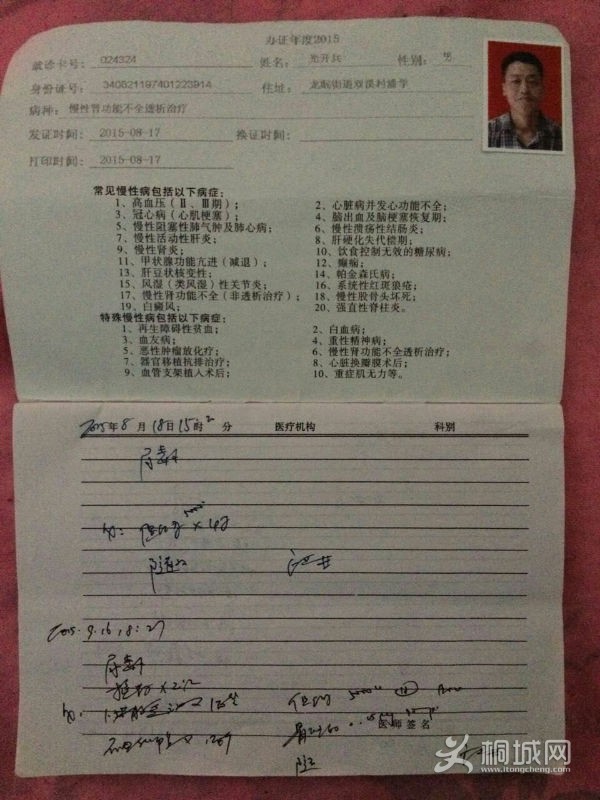 办证年度2015
就诊卡号： 024324 姓名： 光开兵 性别： 男
身份证号： 340521197401223914 住址： 龙眠街道双溪村潘学
病种：慢性肾功能不全透析治疗
发证时间： 2015-08-17 换证时间：
打印时间： 2015-08-17
常见慢性病包括以下病症：
1、高血压（Ⅱ、Ⅲ期）； 2、心脏病并发心功能不全；
3、冠心病（心肌梗塞）； 4、脑出血及脑梗塞恢复期；
5、慢性阻塞性肺气肿及肺心病； 6、慢性溃疡性结肠炎；
7、慢性活动性肝炎； 8、肝硬化失代偿期；
9、慢性肾炎； 10、饮食控制无效的糖尿病；
11、甲状腺功能亢进（减退）； 12、癫痫；
13、肝豆状核变性； 14、帕金森氏病；
15、风湿（类风湿）性关节炎； 16、系统性红斑狼疮；
17、慢性肾功能不全（非透析治疗）； 18、慢性股骨头坏死；
19、白癜风； 20、强直性脊柱炎。
特殊慢性病包括以下病症：
1、再生障碍性贫血； 2、白血病；
3、血友病； 4、重性精神病；
5、恶性肿瘤放化疗； 6、慢性肾功能不全透析治疗；
7、器官移植抗排治疗； 8、心脏换瓣膜术后；
9、血管支架植入术后； 10、重症肌无力等。
2015年8月18日15时2分 医疗机构 科别
尿毒症
2015.9.16 18:27
尿毒症
医师签名
桐城网
www.itongcheng.com